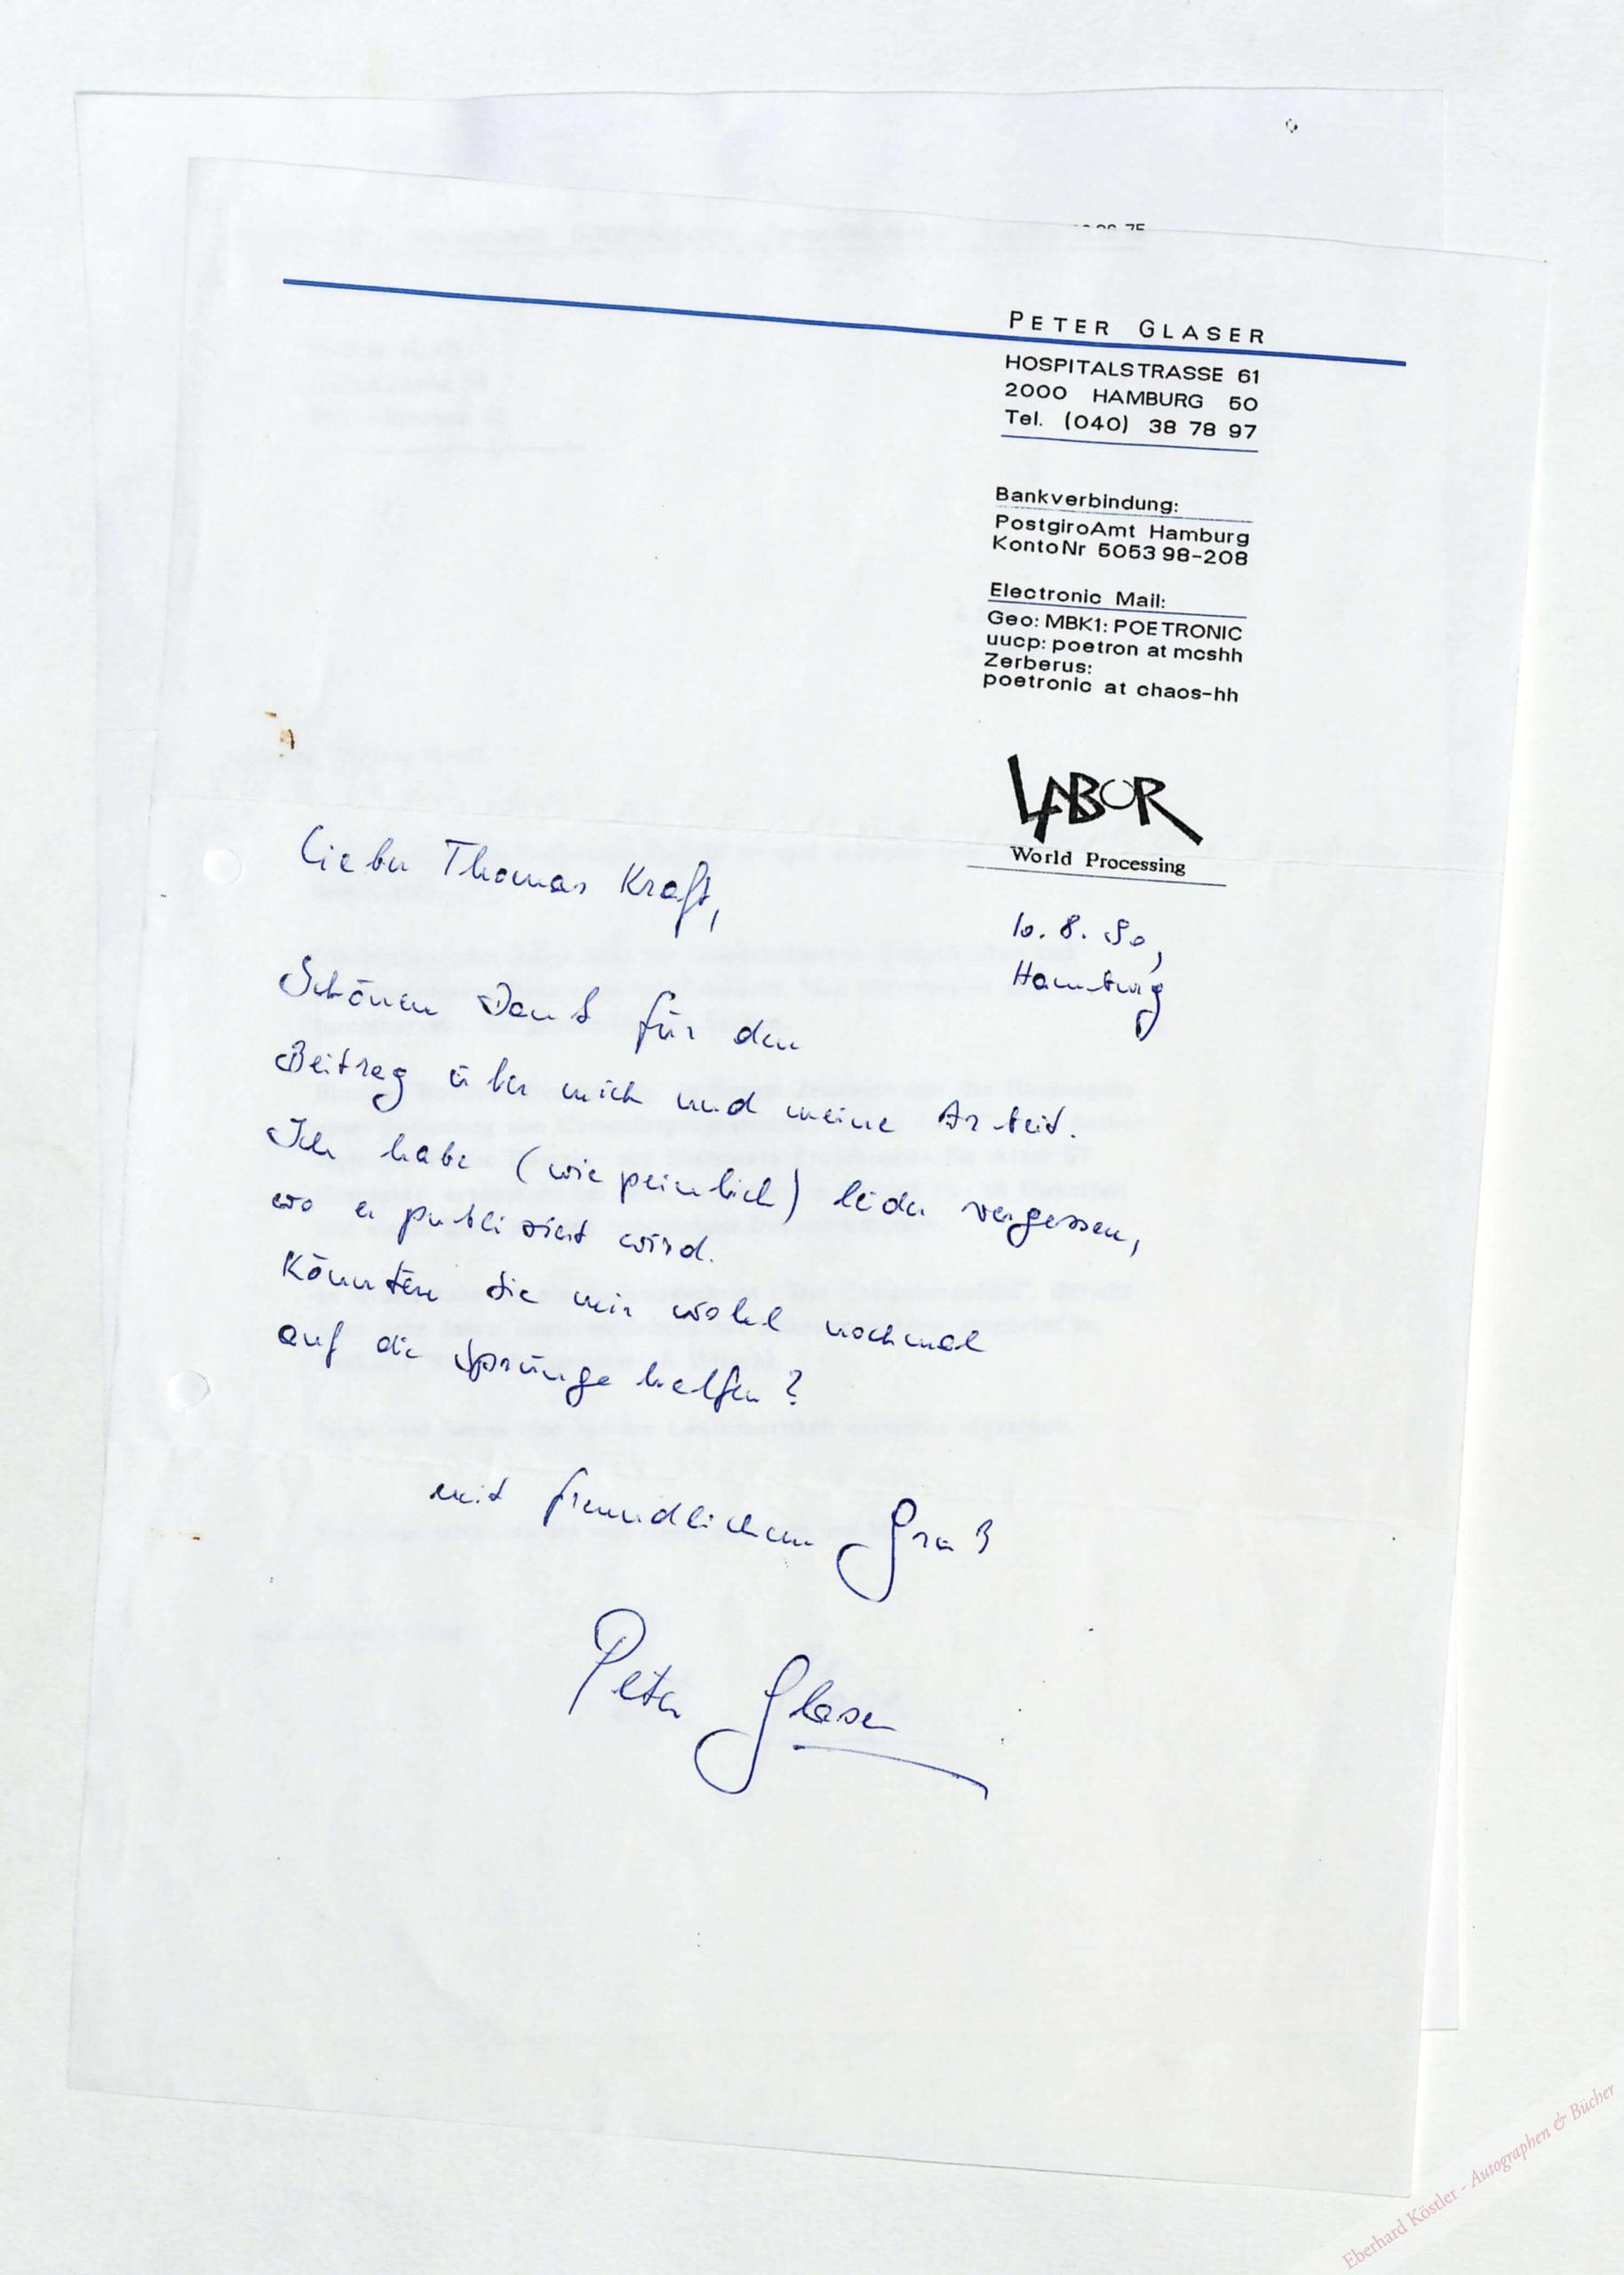 PETER GLASER
HOSPITALSTRASSE 61
2000 HAMBURG 50
Tel. (040) 38 78 97
Bankverbindung:
PostgiroAmt Hamburg
KontoNr 5053 98-208
Electronic Mail:
Geo: MBK1: POETRONIC
uucp: poetron at mcshh
Zerberus:
poetronic at chaos-hh
LABOR
World Processing
10. 8. 90,
Hamburg
Lieber Thomas Kraft,
Schönen Dank für den
Beitrag über mich und meine Arbeit.
Ich habe (wie peinlich) leider vergessen,
wo er publiziert wird.
Könnten Sie mir wohl nochmal
auf die Sprünge helfen?
mit freundlichem Gruß
Peter Glaser
Eberhard Köstler - Autographen & Bücher